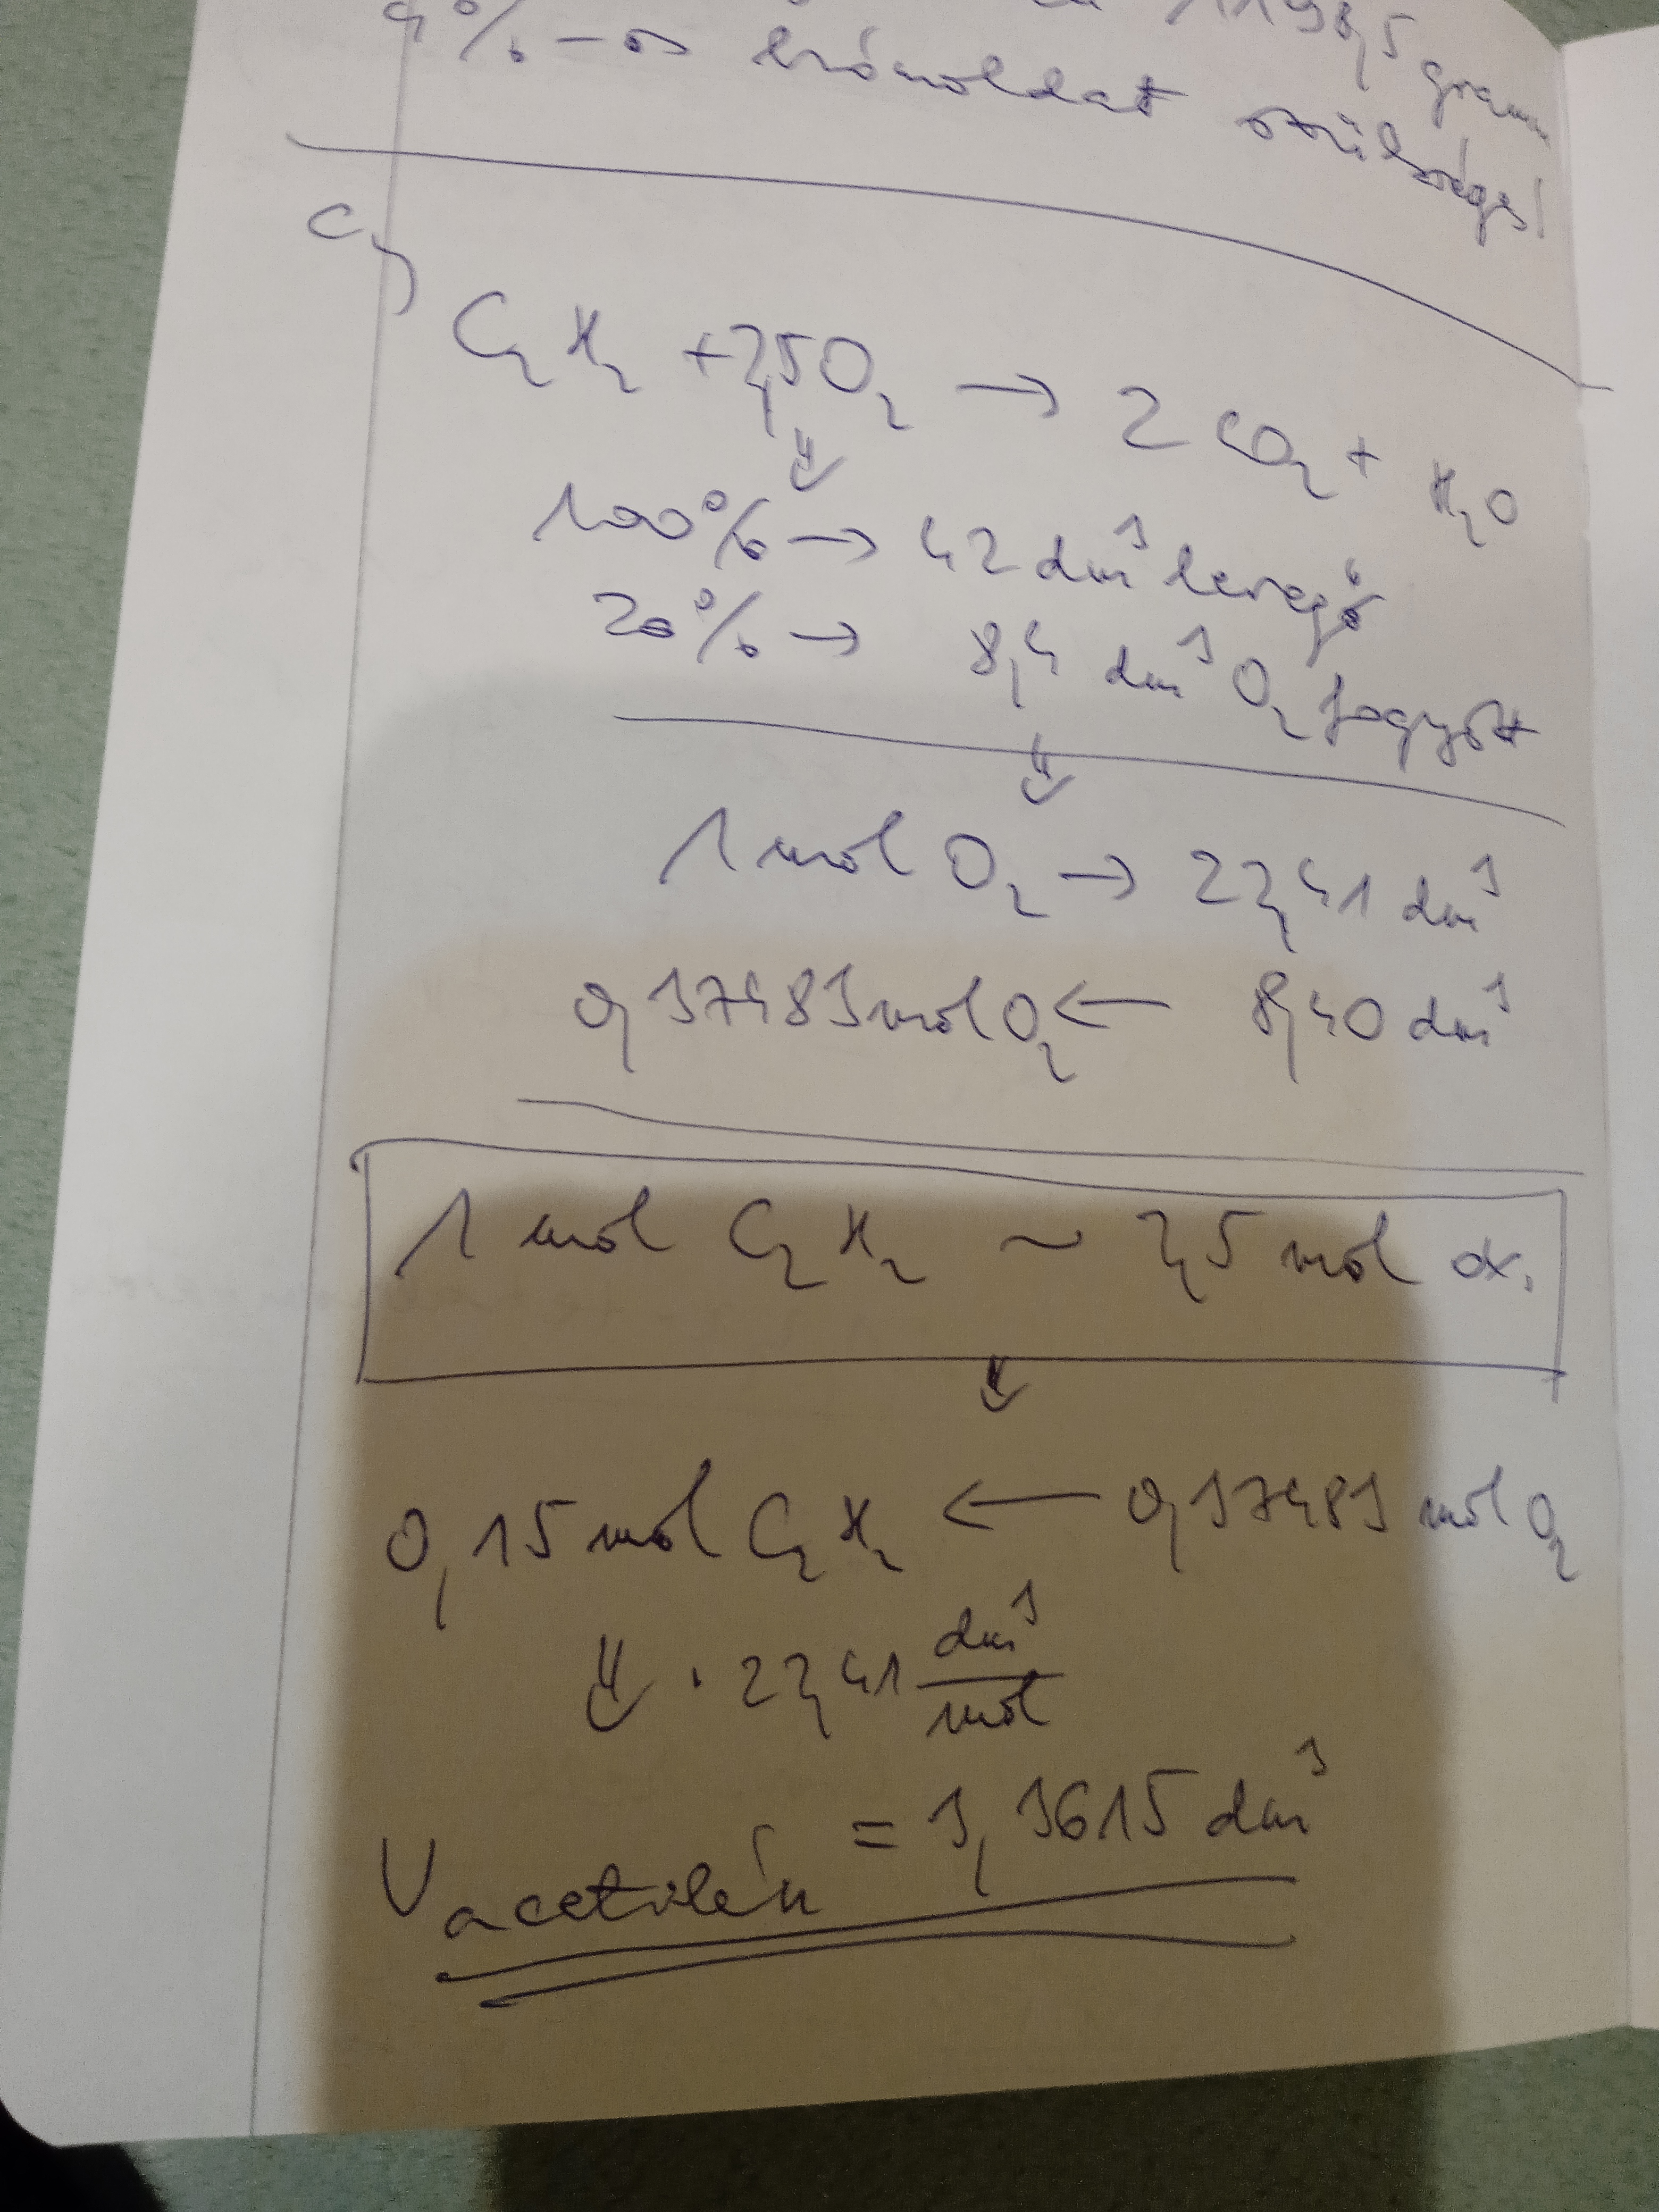 1198,5 gramm
4%-os brómoldat szükséges!
c,
C₂H₂ + 2,5O₂ → 2 CO₂ + H₂O
⇓
100% → 42 dm³ levegő
20% → 8,4 dm³ O₂ fogyott
⇓
1 mol O₂ → 22,41 dm³
0,37483 mol O₂ ← 8,40 dm³
1 mol C₂H₂ ~ 2,5 mol ox.
⇓
0,15 mol C₂H₂ ← 0,37483 mol O₂
⇓ · 22,41 dm³/mol
V acetilén = 3,3615 dm³